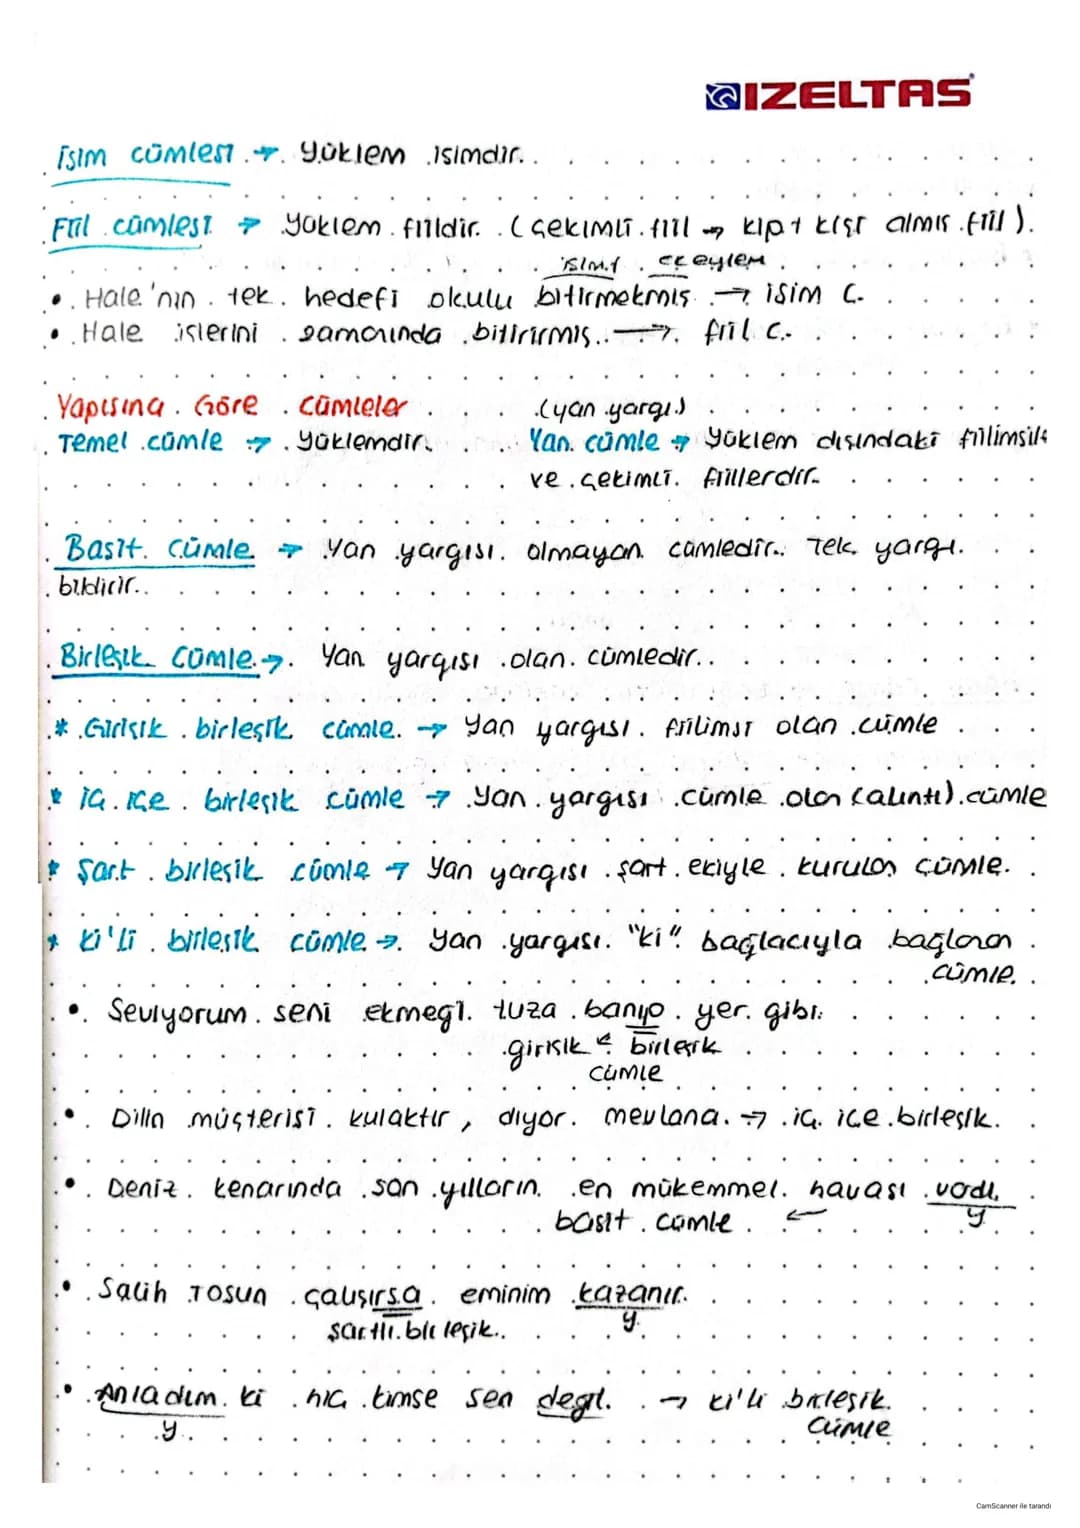 IZELTAS
İsim cümlesi → Yüklem isimdir.
Fiil cümlesi → Yüklem fiildir. (Çekimli fiil → kip + kişi almış fiil).
isim f. ek eylem
• Hale'nin tek hedefi okulu bitirmekmiş. → isim C.
• Hale işlerini zamanında bitirirmiş. → fiil c.
Yapısına Göre Cümleler (yan yargı)
Temel cümle → Yüklemdir. Yan cümle → Yüklem dışındaki fiilimsile
ve çekimli fiillerdir.
Basit Cümle → Yan yargısı olmayan cümledir. Tek yargı
bildirir.
Birleşik Cümle → Yan yargısı olan cümledir.
* Girişik birleşik cümle. → Yan yargısı fiilimsi olan cümle
* iç içe birleşik cümle → Yan yargısı cümle olan (alıntı) cümle
* Şart birleşik cümle → Yan yargısı şart ekiyle kurulan cümle.
* ki'li birleşik cümle → Yan yargısı "ki" bağlacıyla bağlanan
cümle.
• Seviyorum seni ekmeği tuza banıp yer gibi.
girişik birleşik
cümle
• Dilin müşterisi kulaktır, diyor mevlana. → iç içe birleşik.
• Deniz kenarında son yılların en mükemmel havası vardı.
basit cümle ← y
• Salih Tosun çalışırsa eminim kazanır.
şartlı birleşik. y.
• Anladım ki hiç kimse sen değil. → ki'li birleşik
y. cümle
CamScanner ile tarandı